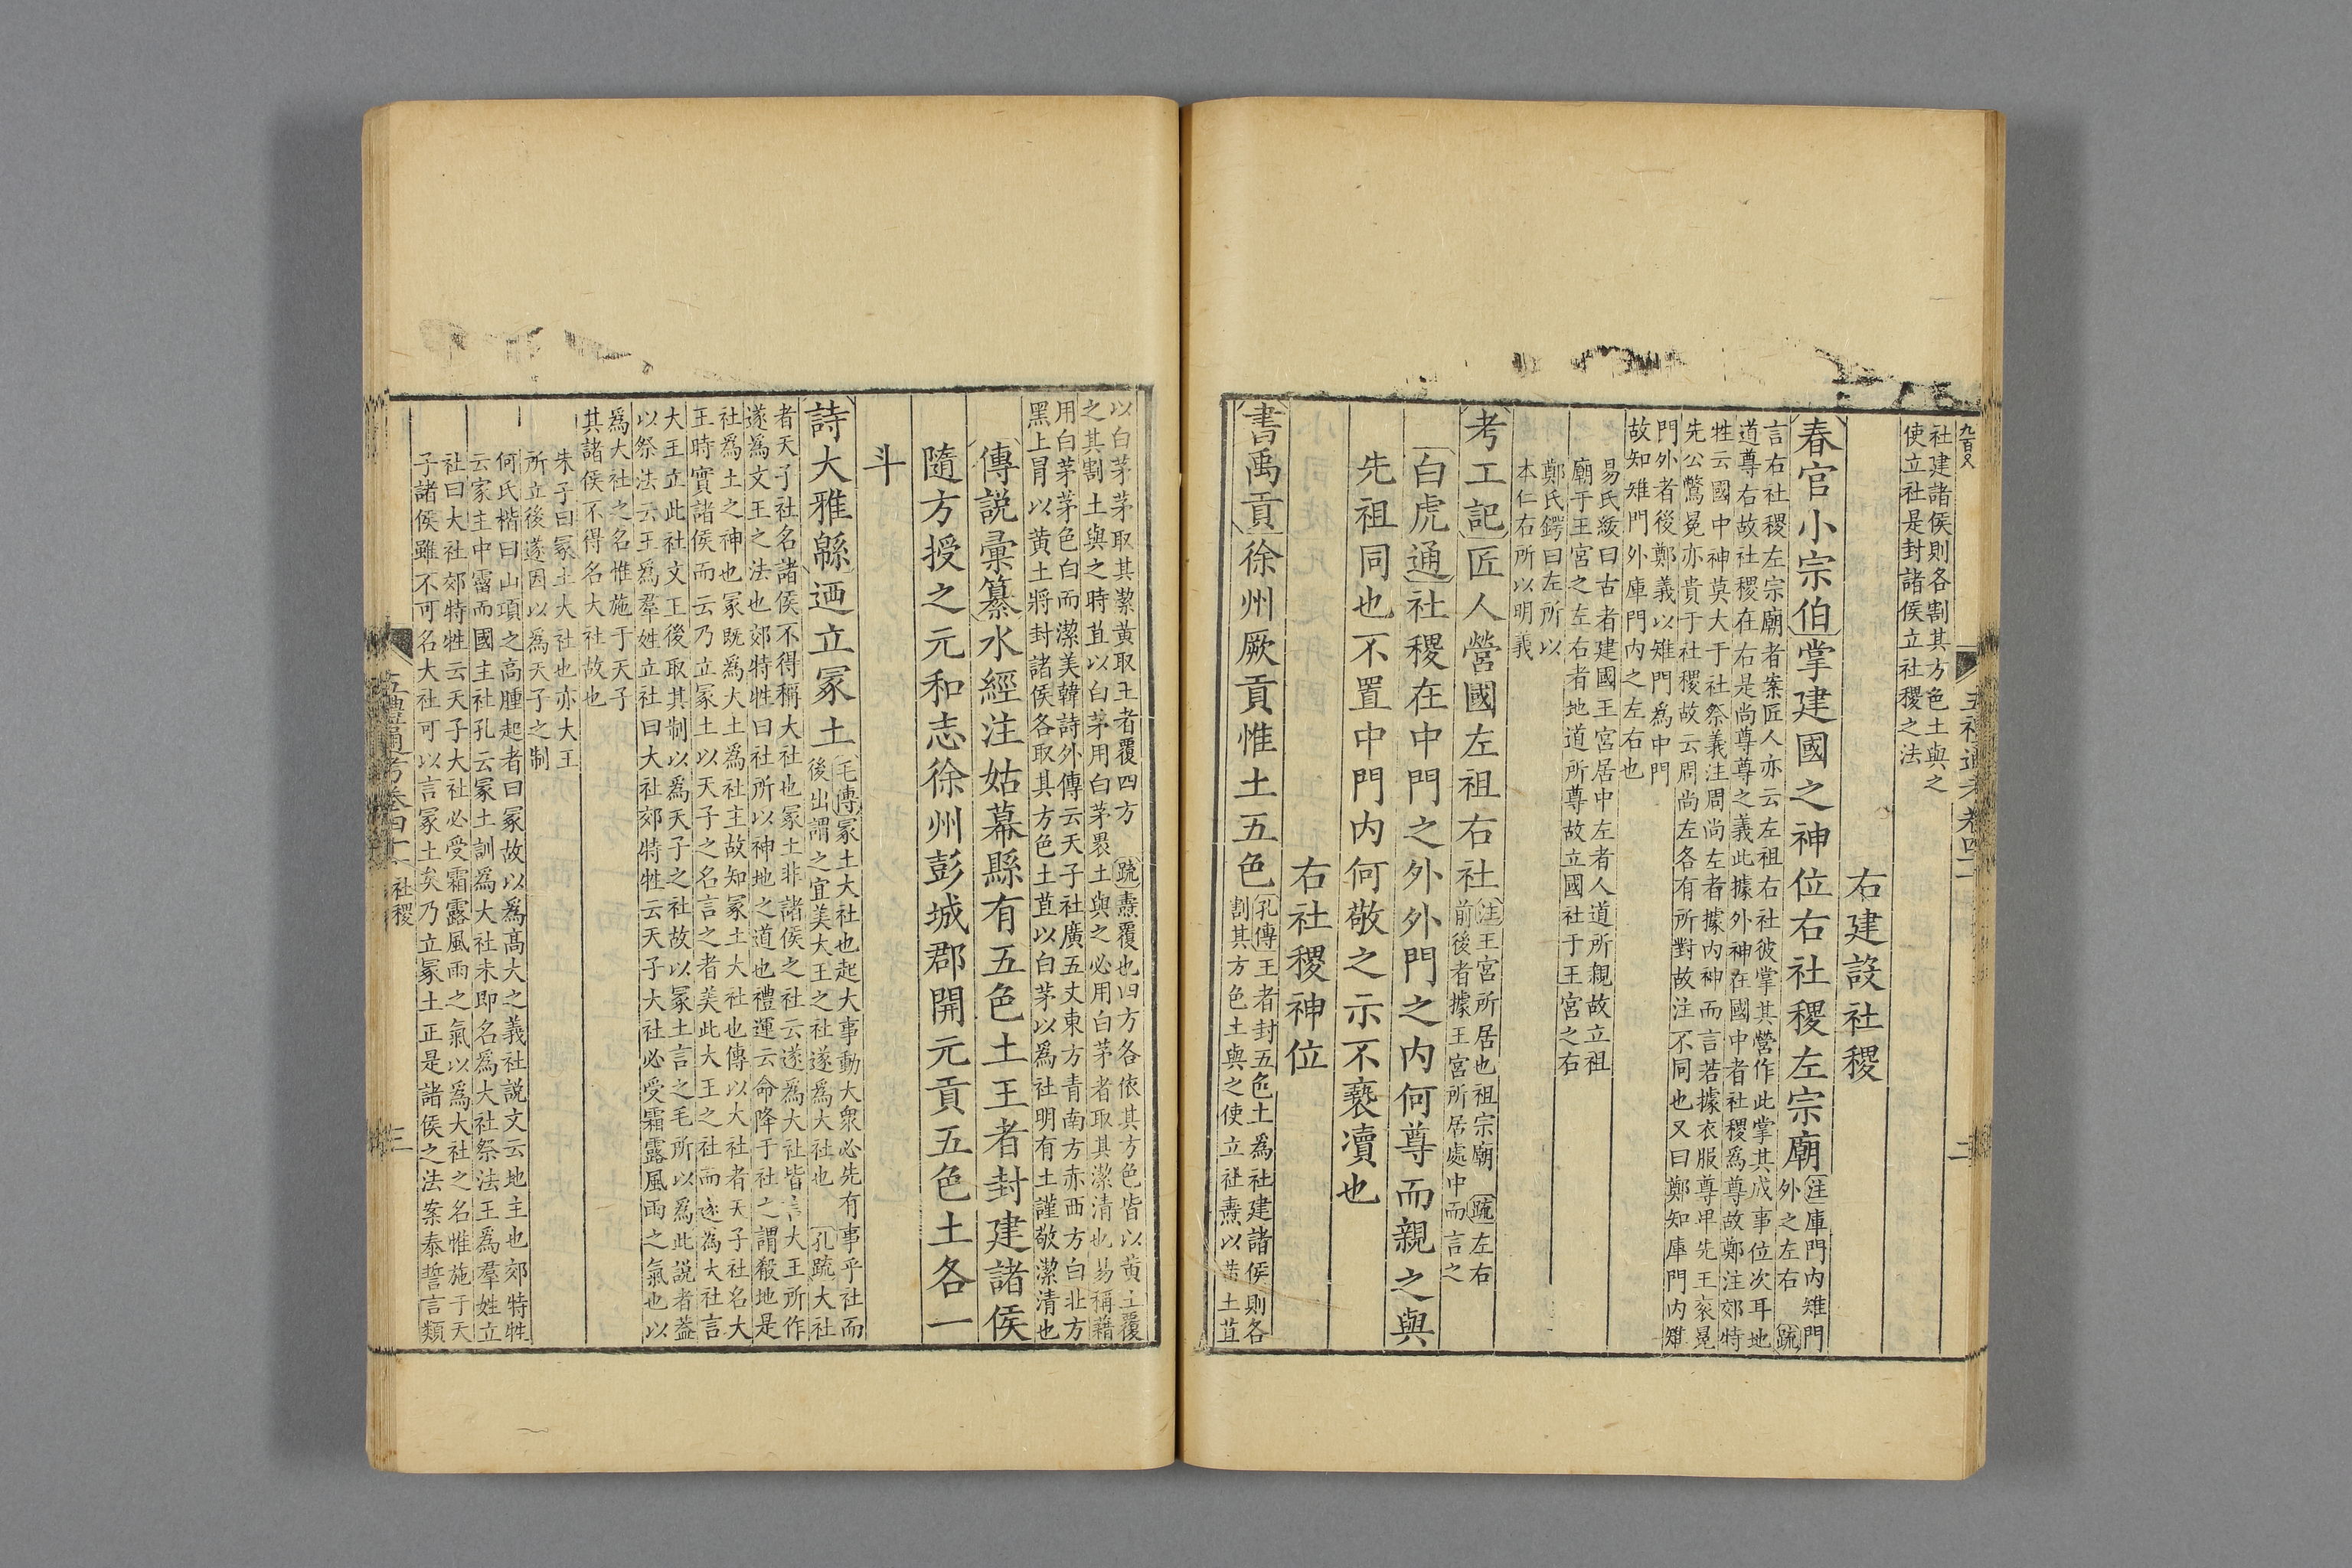 社建諸侯則各割其方色土與之
使立社是封諸侯立社稷之法
右建設社稷
春官小宗伯掌建國之神位右社稷左宗廟
注庫門内雉門
外之左右 疏
言右社稷左宗廟者案匠人亦云左祖右社彼掌其營作此掌其成事位次耳地
道尊右故社稷在右是尚尊尊之義此據外神在國中者社稷爲尊故鄭注郊特
牲云國中神莫大于社祭義注周尚左者據内神而言若據衣服尊卑先王衮冕
先公鷩冕亦貴于社稷故云周尚左各有所對故注不同也又曰鄭知庫門内雉
門外者後鄭義以雉門爲中門
故知雉門外庫門内之左右也
易氏紱曰古者建國王宮居中左者人道所親故立祖
廟于王宮之左右者地道所尊故立國社于王宮之右
鄭氏鍔曰左所以
本仁右所以明義
考工記匠人營國左祖右社
注王宮所居也祖宗廟 疏左右
前後者據王宮所居處中而言之
白虎通社稷在中門之外外門之内何尊而親之與
先祖同也不置中門内何敬之示不褻瀆也
右社稷神位
書禹貢徐州厥貢惟土五色
孔傳王者封五色土爲社建諸侯則各
割其方色土與之使立社燾以黄土苴
以白茅茅取其潔黄取王者覆四方 疏燾覆也四方各依其方色皆以黄土覆
之其割土與之時苴以白茅用白茅褁土與之必用白茅者取其潔清也易稱藉
用白茅茅色白而潔美韓詩外傳云天子社廣五丈東方青南方赤西方白北方
黑上冐以黄土將封諸侯各取其方色土苴以白茅以爲社明有土謹敬潔清也
傳說彙纂水經注姑幕縣有五色土王者封建諸侯
隨方授之元和志徐州彭城郡開元貢五色土各一
斗
詩大雅緜迺立冢土
毛傳冢土大社也起大事動大衆必先有事乎社而
後出謂之宜美大王之社遂爲大社也 孔疏大社
者天子社名諸侯不得稱大社也冢土非諸侯之社云遂爲大社皆言大王所作
遂爲文王之法也郊特牲曰社所以神地之道也禮運云命降于社之謂殽地是
社爲土之神也冢既爲大土爲社主故知冢土大社也傳以大社者天子社名大
王時實諸侯而云乃立冢土以天子之名言之者美此大王之社而遂爲大社言
大王立此社文王後取其制以爲天子之社故以冢土言之毛所以爲此說者葢
以祭法云王爲羣姓立社曰大社郊特牲云天子大社必受霜露風雨之氣也以
爲大社之名惟施于天子
其諸侯不得名大社故也
朱子曰冢土大社也亦大王
所立後遂因以爲天子之制
何氏楷曰山項之高腫起者曰冢故以爲高大之義社說文云地主也郊特牲
云家主中霤而國主社孔云冢土訓爲大社未即名爲大社祭法王爲羣姓立
社曰大社郊特牲云天子大社必受霜露風雨之氣以爲大社之名惟施于天
子諸侯雖不可名大社可以言冢土矣乃立冢土正是諸侯之法案泰誓言類
五禮通考卷四十二 社稷
三